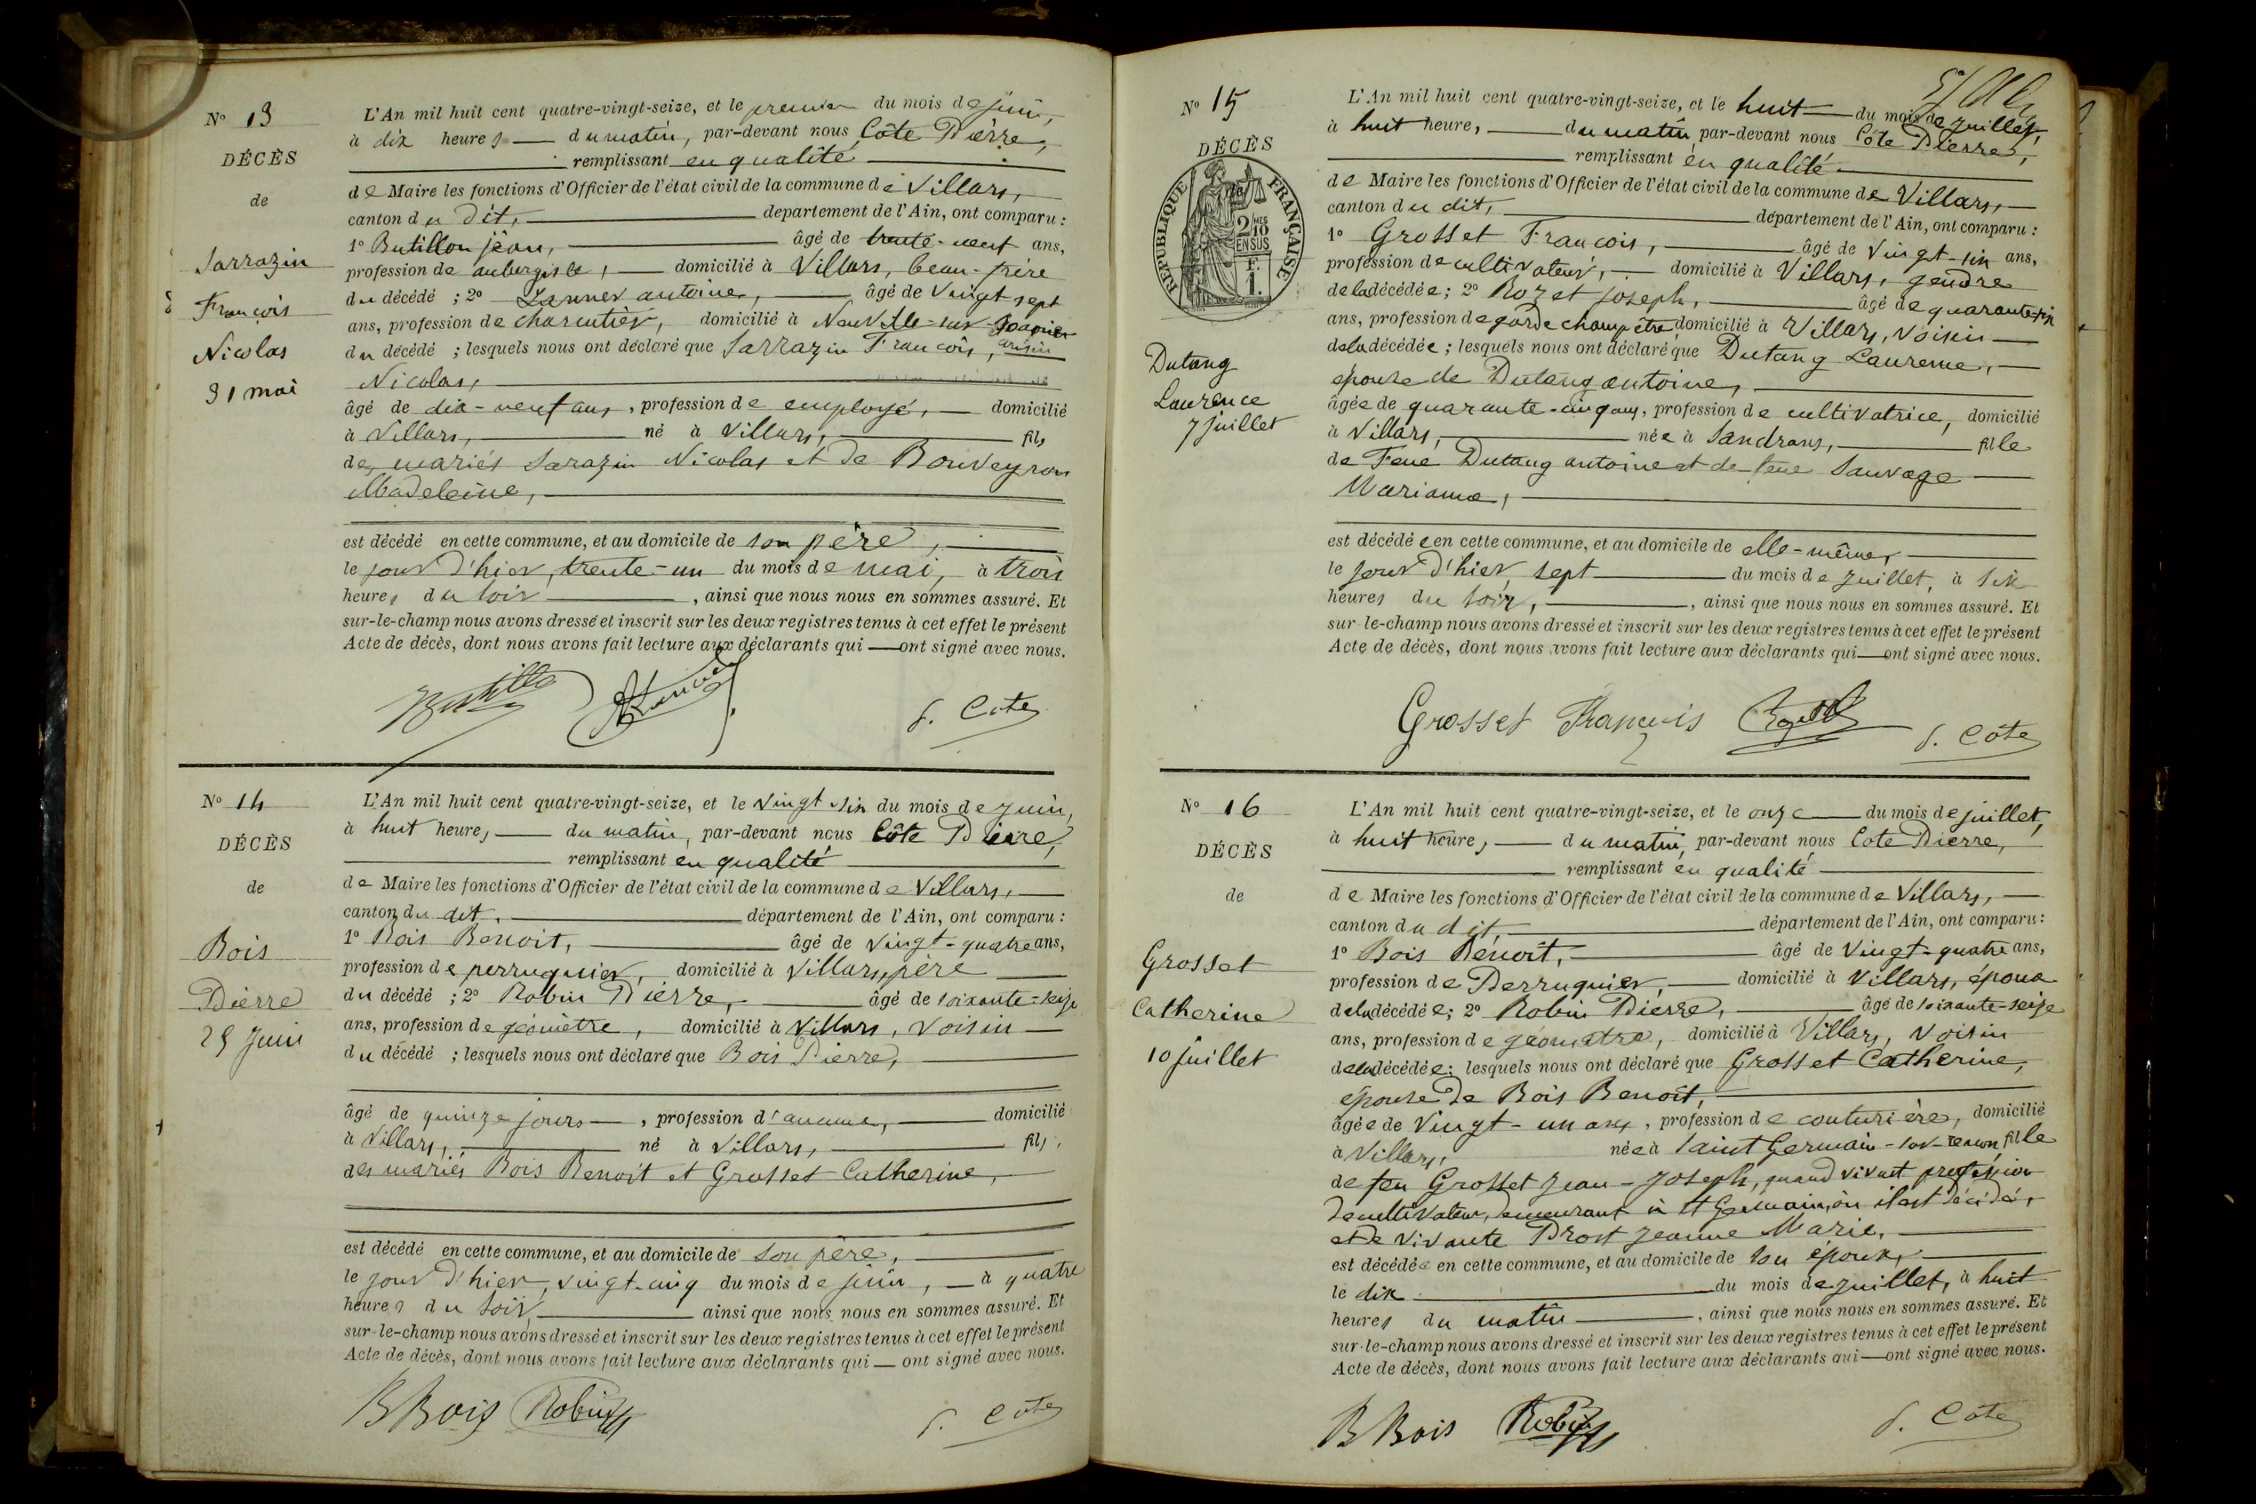 Nº 13
DÉCÈS
de
Sarrazin
François
Nicolas
31 mai
L'An mil huit cent quatre-vingt-seize, et le premier du mois de juin,
à dix heures du matin, par-devant nous Côte Pierre,
remplissant en qualité
de Maire les fonctions d'Officier de l'état civil de la commune de Villars,
canton du dit, département de l'Ain, ont comparu :
1º Butillon jean, âgé de trente-neuf ans,
profession de aubergiste, domicilié à Villars, beau-frère
du décédé ; 2º antoine, âgé de vingt sept
ans, profession de charcutier, domicilié à Neuville-sur-
du décédé ; lesquels nous ont déclaré que Sarrazin François,
Nicolas,
âgé de dix-neuf ans, profession de employé, domicilié
à Villars, né à Villars, fils
des mariés Sarazin Nicolas et de Bouveyron
Madeleine,
est décédé en cette commune, et au domicile de son père,
le jour d'hier, trente-un du mois de mai, à trois
heures du soir, ainsi que nous nous en sommes assuré. Et
sur-le-champ nous avons dressé et inscrit sur les deux registres tenus à cet effet le présent
Acte de décès, dont nous avons fait lecture aux déclarants qui ont signé avec nous.
P. Côte
Nº 14
DÉCÈS
de
Bois
Pierre
25 Juin
L'An mil huit cent quatre-vingt-seize, et le vingt-six du mois de juin,
à huit heures du matin, par-devant nous Côte Pierre,
remplissant en qualité
de Maire les fonctions d'Officier de l'état civil de la commune de Villars,
canton du dit, département de l'Ain, ont comparu :
1º Bois Benoit, âgé de vingt-quatre ans,
profession de perruquier, domicilié à Villars, père
du décédé ; 2º Robin Pierre, âgé de soixante-seize
ans, profession de géomètre, domicilié à Villars, voisin
du décédé ; lesquels nous ont déclaré que Bois Pierre,
âgé de quinze jours, profession d'aucune, domicilié
à Villars, né à Villars, fils
des mariés Bois Benoit et Grosset Catherine,
est décédé en cette commune, et au domicile de son père,
le jour d'hier, vingt-cinq du mois de juin, à quatre
heures du soir, ainsi que nous nous en sommes assuré. Et
sur-le-champ nous avons dressé et inscrit sur les deux registres tenus à cet effet le présent
Acte de décès, dont nous avons fait lecture aux déclarants qui ont signé avec nous.
B Bois Robin P. Côte
Nº 15
DÉCÈS
de
RÉPUBLIQUE FRANÇAISE
2 MES 10 EN SUS
F. 1.
Dutang
Laurence
7 juillet
L'An mil huit cent quatre-vingt-seize, et le huit du mois de juillet,
à huit heure, du matin par-devant nous Côte Pierre,
remplissant en qualité
de Maire les fonctions d'Officier de l'état civil de la commune de Villars,
canton du dit, département de l'Ain, ont comparu :
1º Grosset François, âgé de vingt-six ans,
profession de cultivateur, domicilié à Villars, gendre
de la décédée ; 2º Rozet Joseph, âgé de quarante-six
ans, profession de garde champêtre, domicilié à Villars, voisin
de la décédée ; lesquels nous ont déclaré que Dutang Laurence,
épouse de Dutang antoine,
âgée de quarante-cinq ans, profession de cultivatrice, domicilié
à Villars, née à Sandrans, fille
de Feue Dutang antoine et de feue Sauvage
Marianne,
est décédée en cette commune, et au domicile de elle-même,
le jour d'hier, sept du mois de juillet, à six
heures du soir, ainsi que nous nous en sommes assuré. Et
sur-le-champ nous avons dressé et inscrit sur les deux registres tenus à cet effet le présent
Acte de décès, dont nous avons fait lecture aux déclarants qui ont signé avec nous.
Grosset François P. Côte
Nº 16
DÉCÈS
de
Grosset
Catherine
10 juillet
L'An mil huit cent quatre-vingt-seize, et le onze du mois de juillet,
à huit heures, du matin, par-devant nous Cote Pierre,
remplissant en qualité
de Maire les fonctions d'Officier de l'état civil de la commune de Villars,
canton du dit, département de l'Ain, ont comparu :
1º Bois Benoit, âgé de vingt-quatre ans,
profession de Perruquier, domicilié à Villars, époux
de la décédée ; 2º Robin Pierre, âgé de soixante-seize
ans, profession de géomètre, domicilié à Villars, voisin
de la décédée ; lesquels nous ont déclaré que Grosset Catherine,
épouse de Bois Benoît,
âgée de vingt-un ans, profession de couturière, domicilié
à Villars, née à Saint Germain-sur-renon, fille
de feu Grosset Jean-Joseph, quand vivait profession
de cultivateur, demeurant à St Germain, où il est décédé,
et de vivante Prost Jeanne Marie,
est décédée en cette commune, et au domicile de son époux,
le dix du mois de juillet, à huit
heures du matin, ainsi que nous nous en sommes assuré. Et
sur-le-champ nous avons dressé et inscrit sur les deux registres tenus à cet effet le présent
Acte de décès, dont nous avons fait lecture aux déclarants qui ont signé avec nous.
B Bois Robin P. Côte